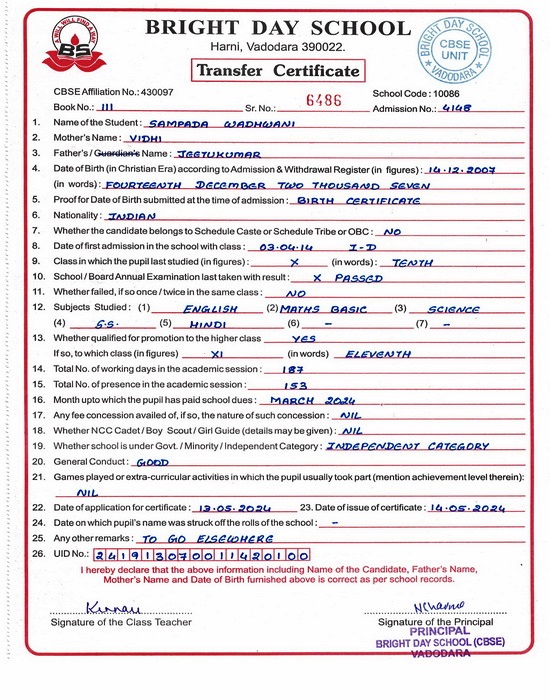 BRIGHT DAY SCHOOL
Harni, Vadodara 390022.
Transfer Certificate
A WILL WILL FIND A WAY
BS
BRIGHT DAY SCHOOL
CBSE
UNIT
VADODARA
CBSE Affiliation No.: 430097 School Code : 10086
Book No.: III Sr. No.: 6486 Admission No.: 4148
1. Name of the Student : SAMPADA WADHWANI
2. Mother's Name : VIDHI
3. Father's / Guardian's Name : JEETUKUMAR
4. Date of Birth (in Christian Era) according to Admission & Withdrawal Register (in figures) : 14.12.2007
(in words) : FOURTEENTH DECEMBER TWO THOUSAND SEVEN
5. Proof for Date of Birth submitted at the time of admission : BIRTH CERTIFICATE
6. Nationality : INDIAN
7. Whether the candidate belongs to Schedule Caste or Schedule Tribe or OBC : NO
8. Date of first admission in the school with class : 03.04.14 I-D
9. Class in which the pupil last studied (in figures) : X (in words) : TENTH
10. School / Board Annual Examination last taken with result : X PASSED
11. Whether failed, if so once / twice in the same class : NO
12. Subjects Studied : (1) ENGLISH (2) MATHS BASIC (3) SCIENCE
(4) S.S. (5) HINDI (6) - (7) -
13. Whether qualified for promotion to the higher class YES
If so, to which class (in figures) XI (in words) ELEVENTH
14. Total No. of working days in the academic session : 187
15. Total No. of presence in the academic session : 153
16. Month upto which the pupil has paid school dues : MARCH 2024
17. Any fee concession availed of, if so, the nature of such concession : NIL
18. Whether NCC Cadet / Boy Scout / Girl Guide (details may be given) : NIL
19. Whether school is under Govt. / Minority / Independent Category : INDEPENDENT CATEGORY
20. General Conduct : GOOD
21. Games played or extra-curricular activities in which the pupil usually took part (mention achievement level therein):
NIL
22. Date of application for certificate : 13.05.2024 23. Date of issue of certificate : 14.05.2024
24. Date on which pupil's name was struck off the rolls of the school : -
25. Any other remarks : TO GO ELSEWHERE
26. UID No.: 241913070011420100
I hereby declare that the above information including Name of the Candidate, Father's Name,
Mother's Name and Date of Birth furnished above is correct as per school records.
Signature of the Class Teacher Signature of the Principal
PRINCIPAL
BRIGHT DAY SCHOOL (CBSE)
VADODARA